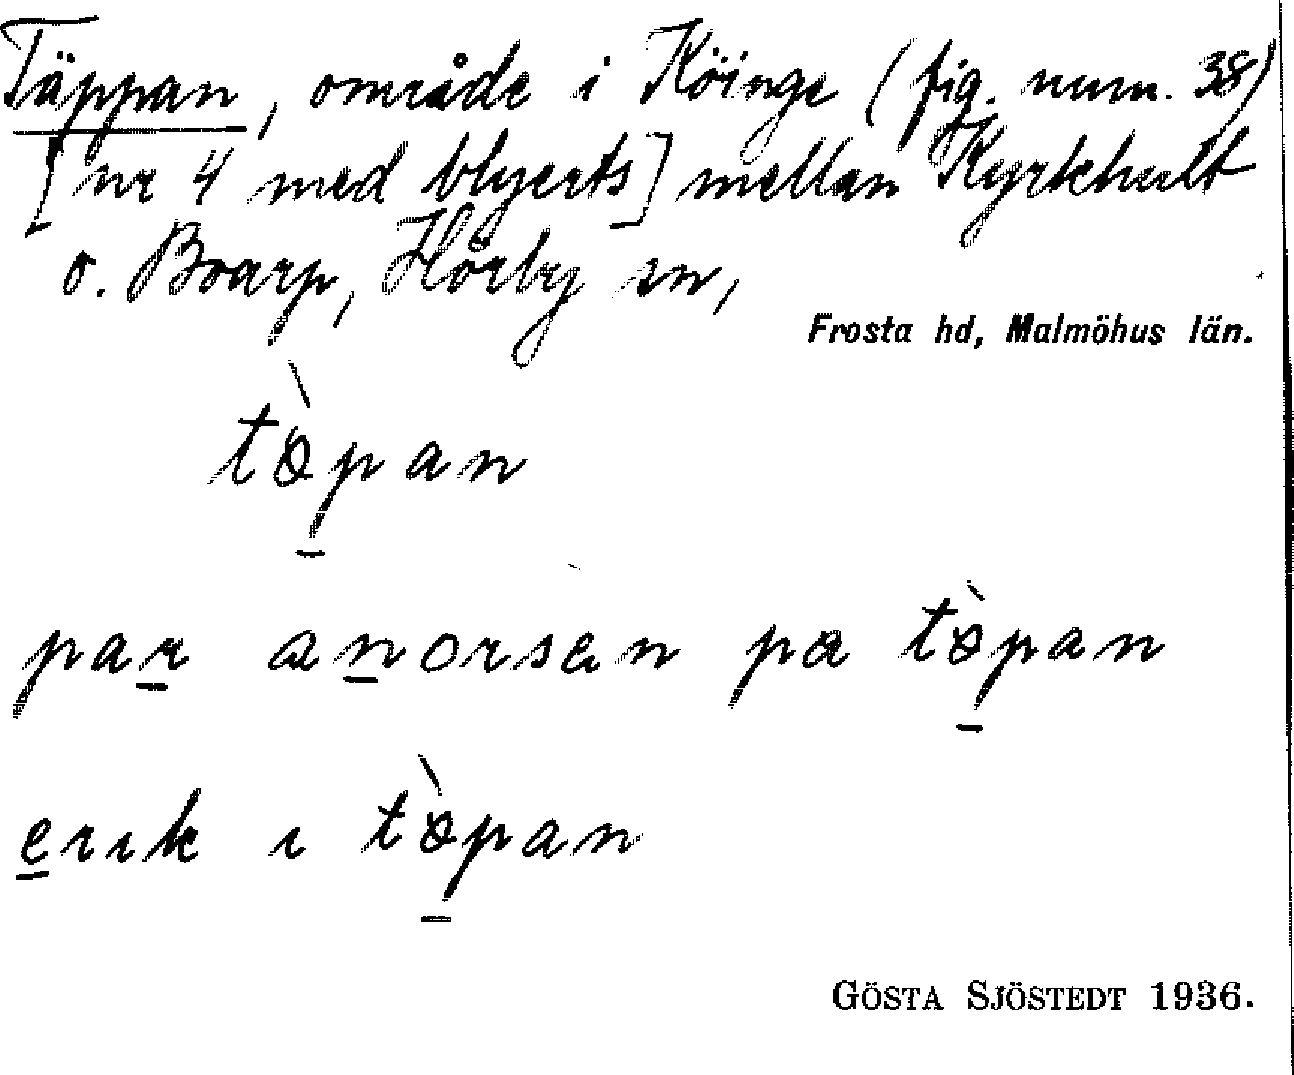 Täppan, område i Köinge (fig. num. 38)
[nr 4 med blyerts] mellan Kyrkhult
o. Boarp, Hörby sn,
Frosta hd, Malmöhus län.
tæ̀pan
par anorsen pa tæ̀pan
erik i tæ̀pan
GÖSTA SJÖSTEDT 1936.